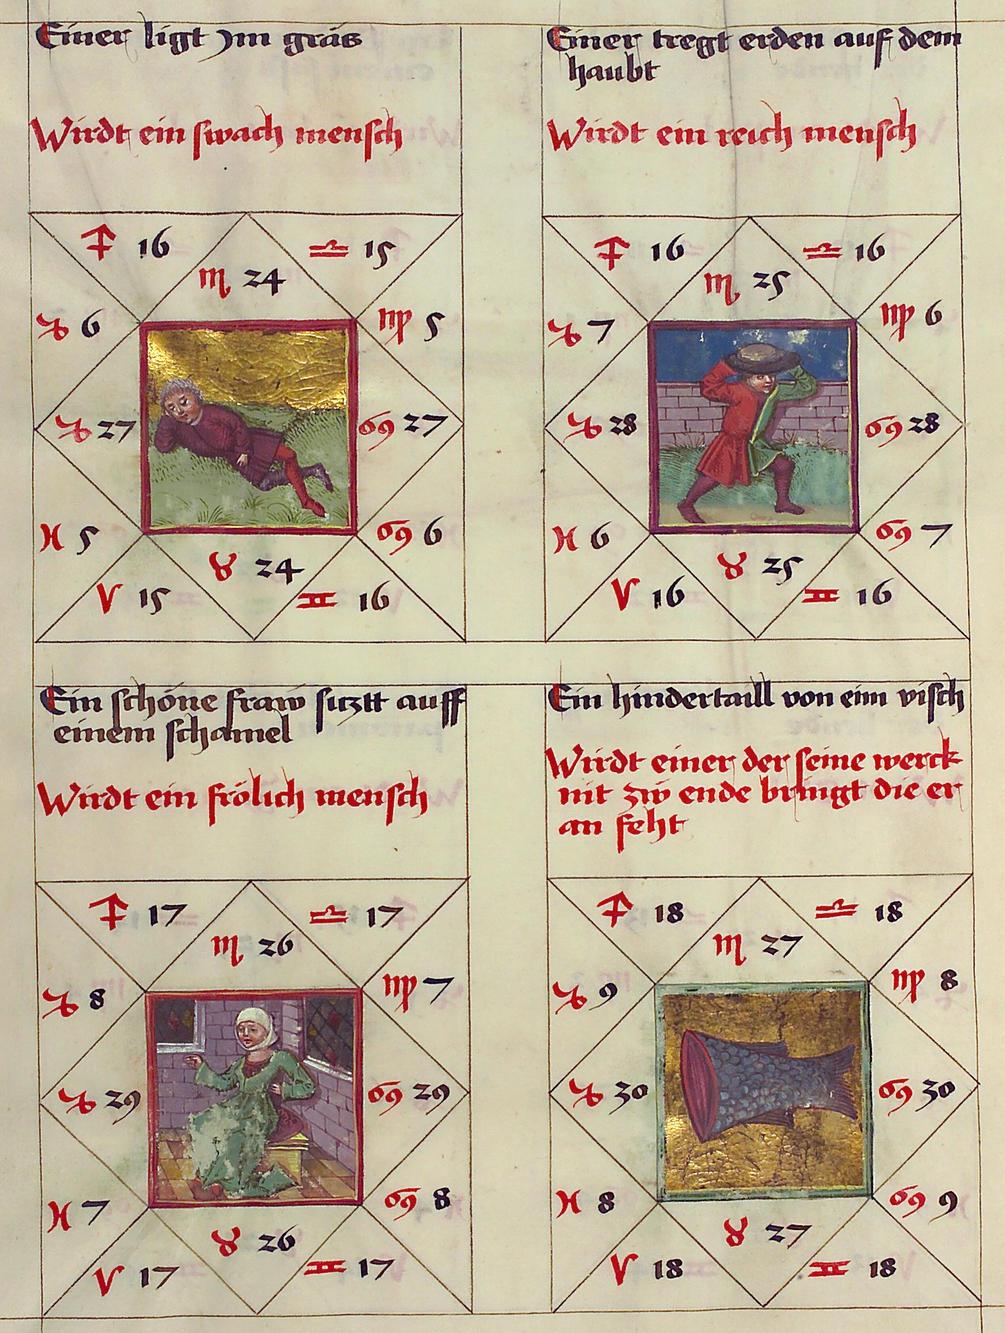 Einer ligt Jm gräs
Wirdt ein swach mensch
♐ 16
♎ 15
♏ 24
♑ 6
♍ 5
♑ 27
♋ 27
♓ 5
♋ 6
♉ 24
♈ 15
♊ 16
Einer tregt erden auf dem
haubt
Wirdt ein reich mensch
♐ 16
♎ 16
♏ 25
♑ 7
♍ 6
♑ 28
♋ 28
♓ 6
♋ 7
♉ 25
♈ 16
♊ 16
Ein schöne fraw sicztt auff
einem schamel
Wirdt ein frölich mensch
♐ 17
♎ 17
♏ 26
♑ 8
♍ 7
♑ 29
♋ 29
♓ 7
♋ 8
♉ 26
♈ 17
♊ 17
Ein hindertaill von eim visch
Wirdt einer der seine werck
nit zw ende bringt die er
an feht
♐ 18
♎ 18
♏ 27
♑ 9
♍ 8
♑ 30
♋ 30
♓ 8
♋ 9
♉ 27
♈ 18
♊ 18